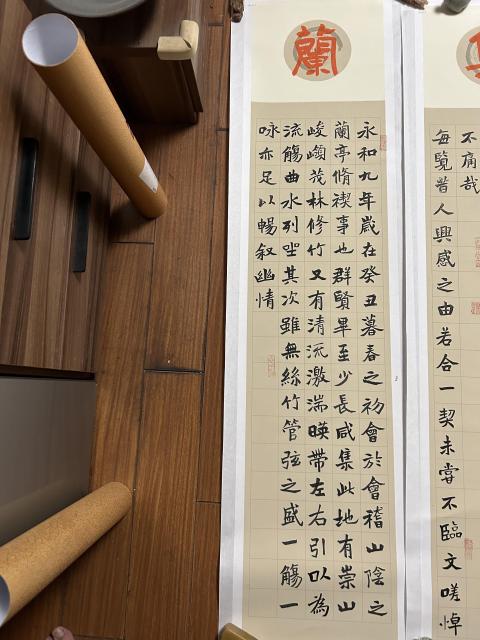 蘭
永和九年歲在癸丑暮春之初會於會稽山陰之
蘭亭脩禊事也群賢畢至少長咸集此地有崇山
峻嶺茂林修竹又有清流激湍暎帶左右引以為
流觴曲水列坐其次雖無絲竹管弦之盛一觴一
咏亦足以暢叙幽情
不痛哉
每覽昔人興感之由若合一契未嘗不臨文嗟悼